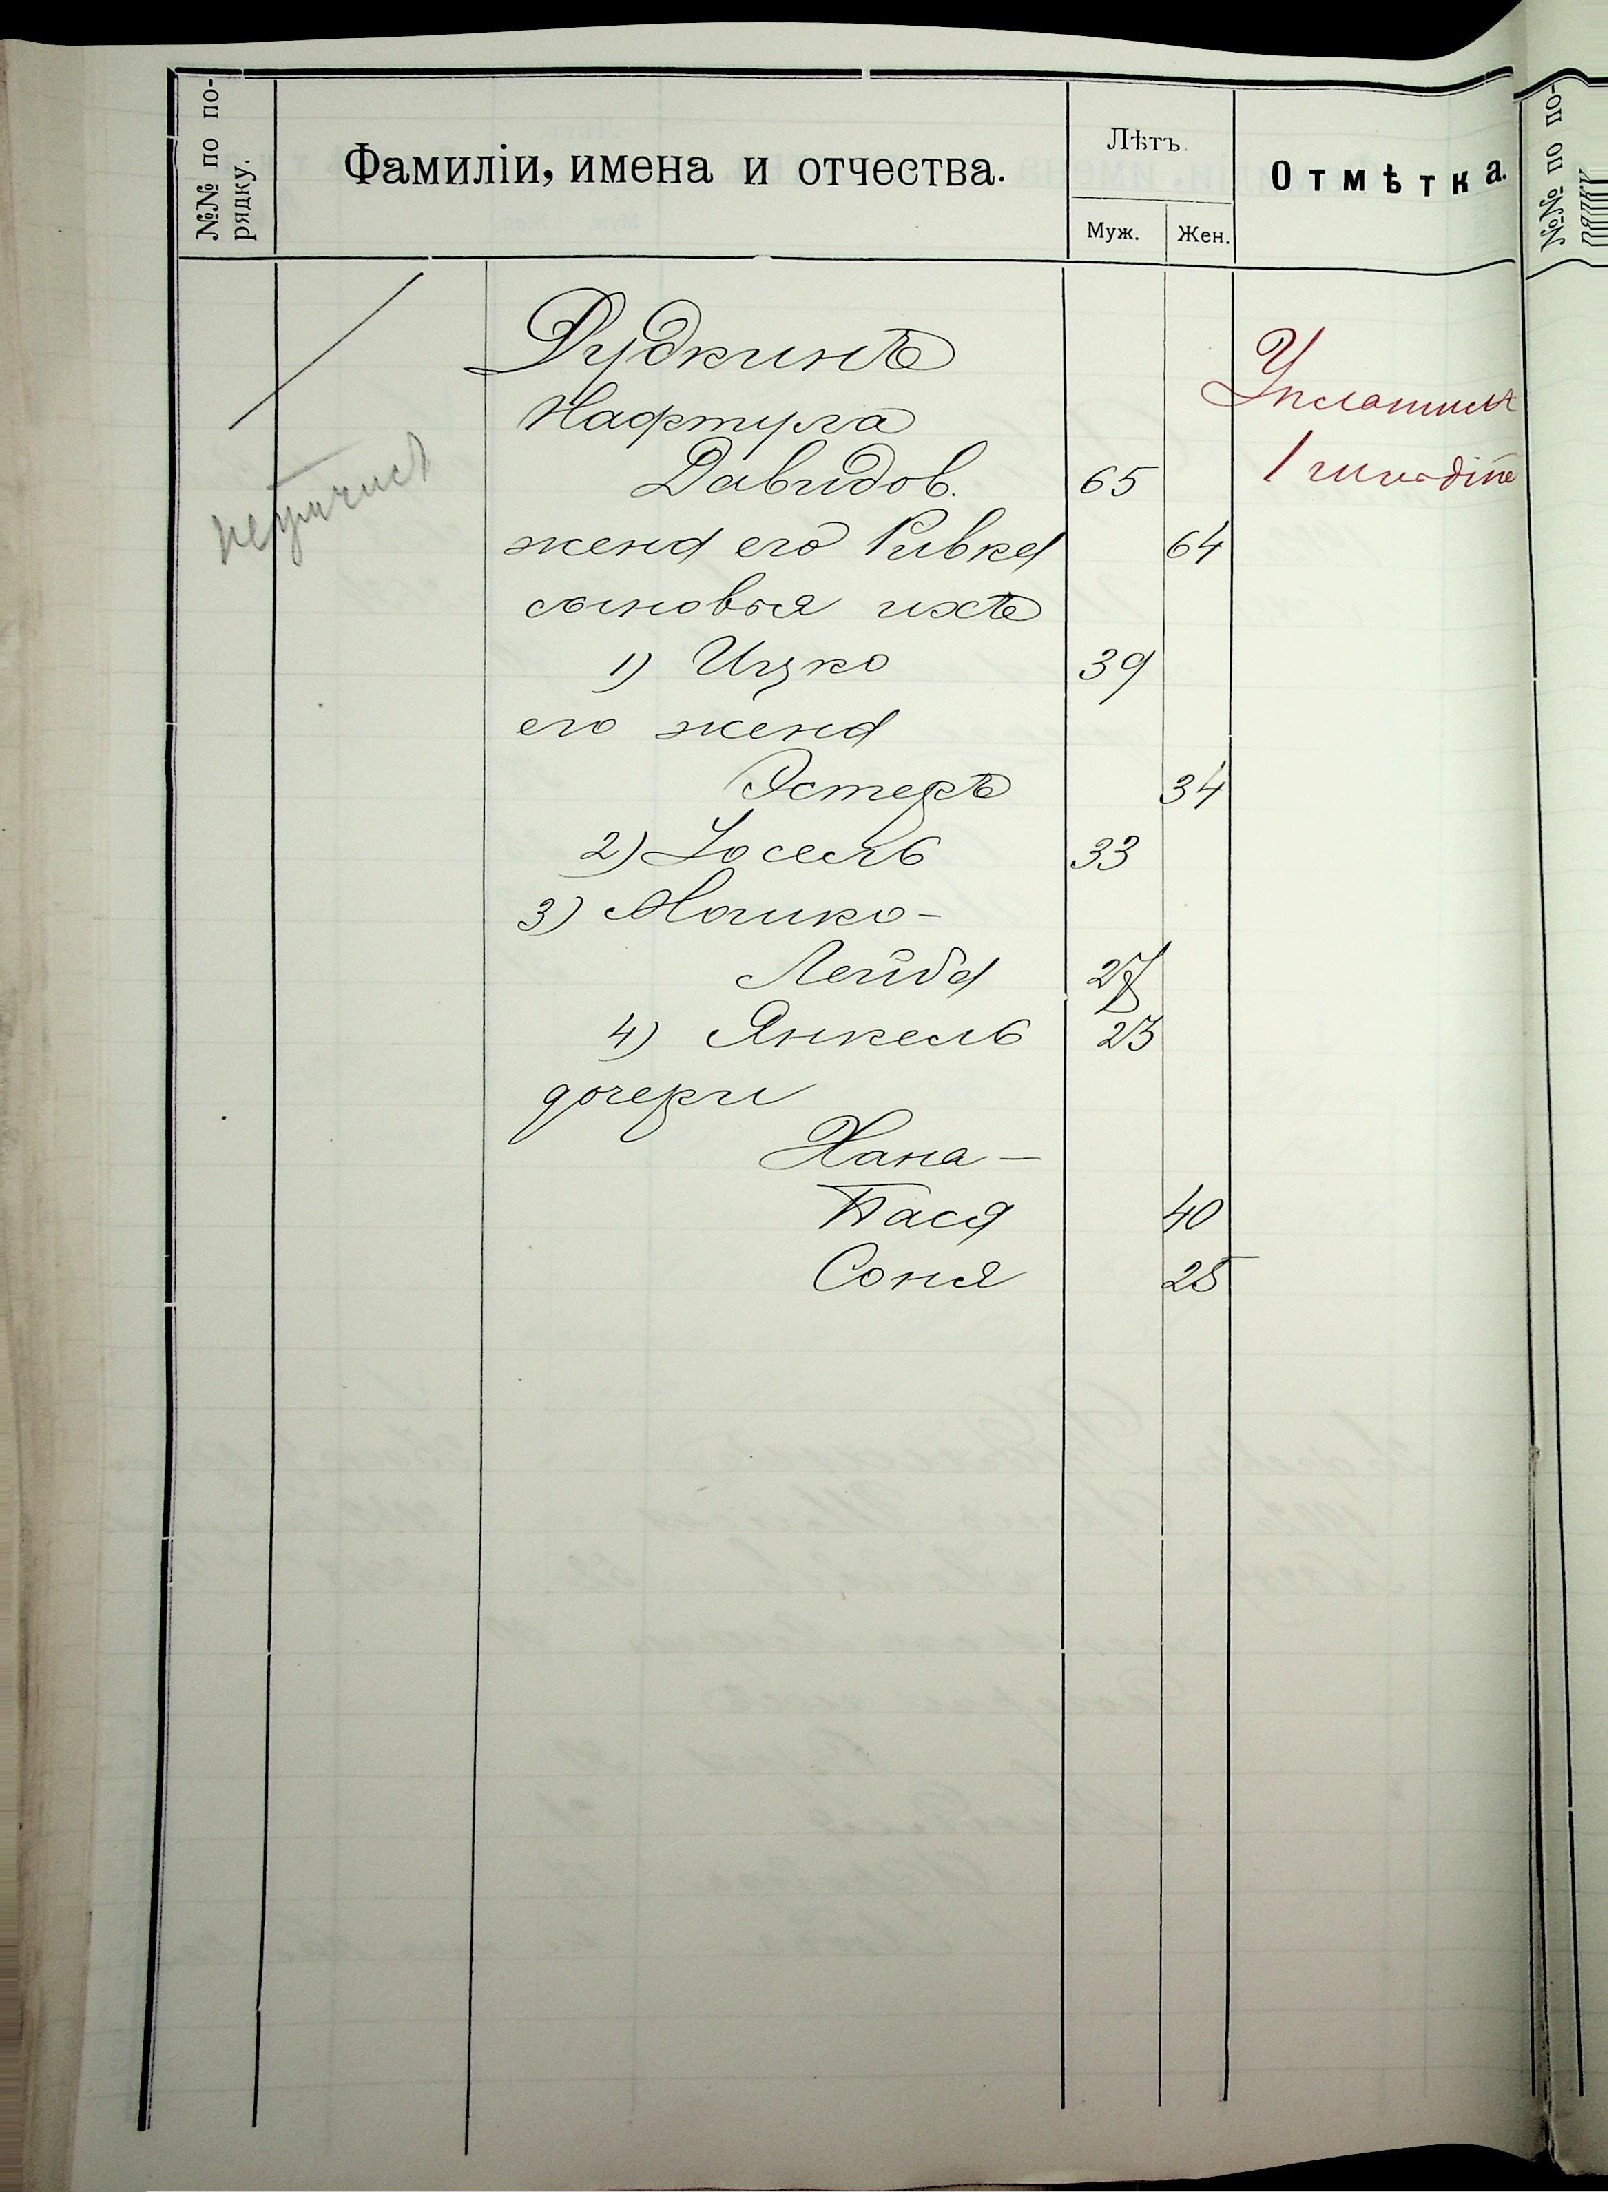 №№ по по-
рядку.
Фамиліи, имена и отчества.
Лѣтъ.
Муж.
Жен.
Отмѣтка.
№№ по по-
рядку
Дудкинъ
Нафтула
Давидов. 65
жена его Ривка 64
сыновья ихъ
1) Ицко 39
его жена
Эстеръ 34
2) Іосель 33
3) Мошко-
Лейба 27
4) Янкель 23
дочери
Хана-
Пася 40
Соня 25
Уплатилъ
1